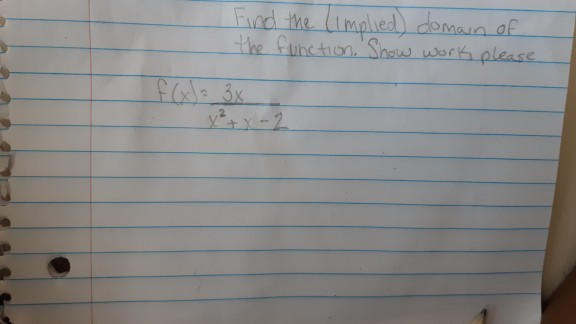 Find the (implied) domain of
the function. Show work please
f(x) = 3x
x² + x - 2